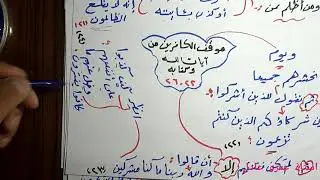 ومن أظلم ممن
أو كذب بآياته
إنه لا يفلح
الظالمون
(٢١)
ويوم
نحشرهم جميعا
ثم نقول للذين أشركوا
أين شركاؤكم الذين كنتم
تزعمون
(٢٢)
موقف الكافرين من
آيات الله
وكتابه
٢٦-٢٢
(٢٤)
انظر كيف كذبوا
على أنفسهم
وضل عنهم ما
كانوا يفترون
ثم لم تكن فتنتهم إلا
أن قالوا
والله ربنا ما كنا مشركين
(٢٣)